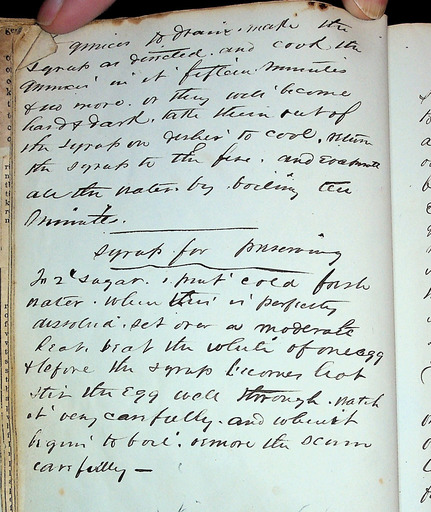 quinces to drain. make the
syrup as directed. and cook the
quinces in it fifteen minutes
& no more. or they will become
hard & dark. take them out of
the syrup on dishes to cool. return
the syrup to the fire. and evaporate
all the water by boiling ten
minutes.
Syrup for preserving
To 2 sugar. 1 pint cold fresh
water. when this is perfectly
dissolved. set over a moderate
heat. beat the white of one egg
& before the syrup becomes hot
stir the Egg well through. watch
it very carefully. and when it
begins to boil. remove the scum
carefully —